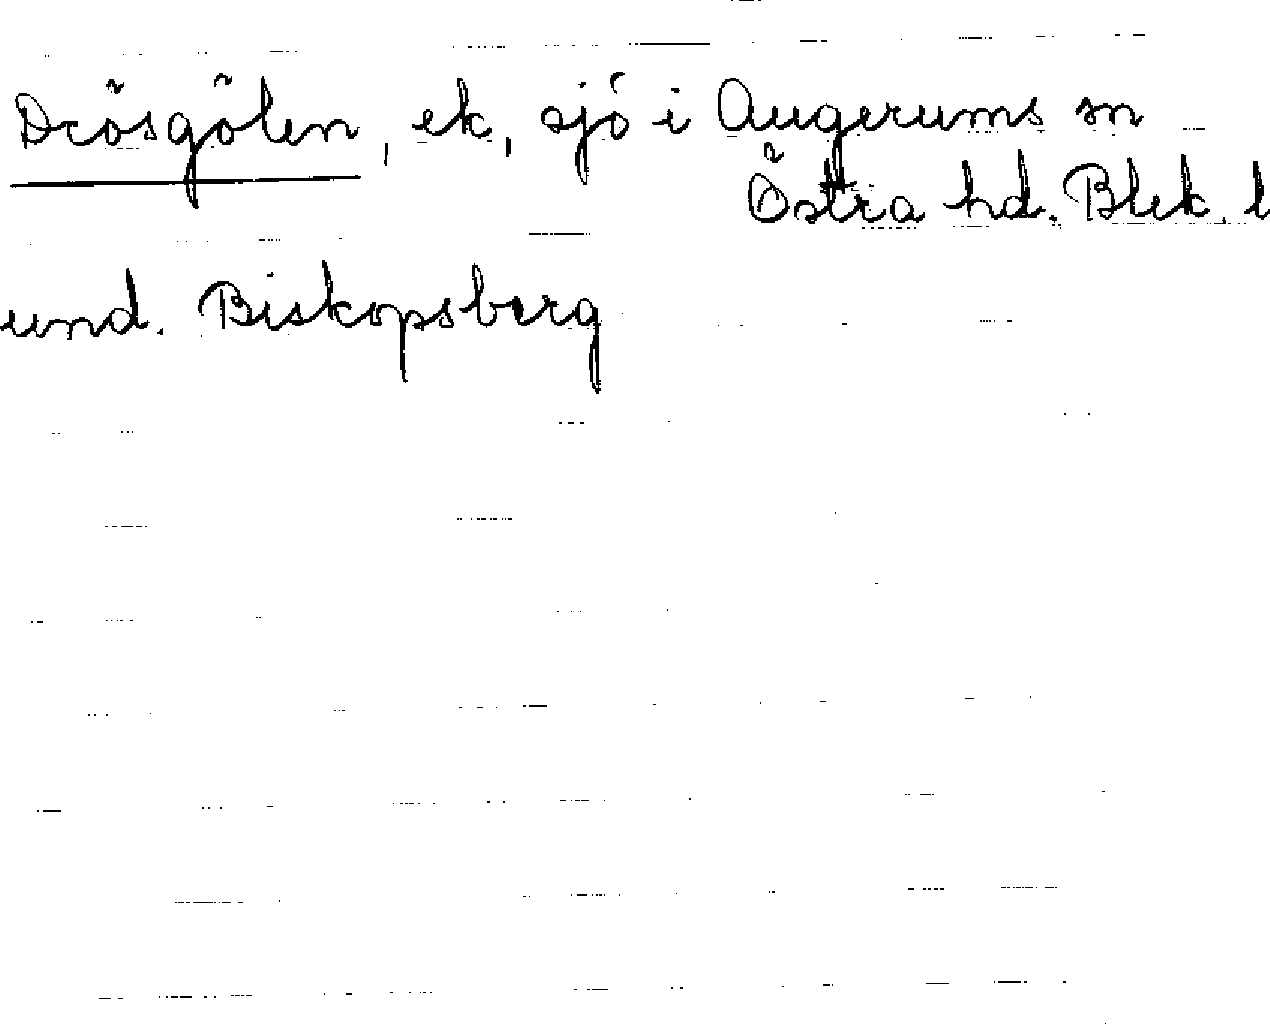 Drösgölen, ek, sjö i Augerums sn
Östra hd. Blek. l
und. Biskopsberg